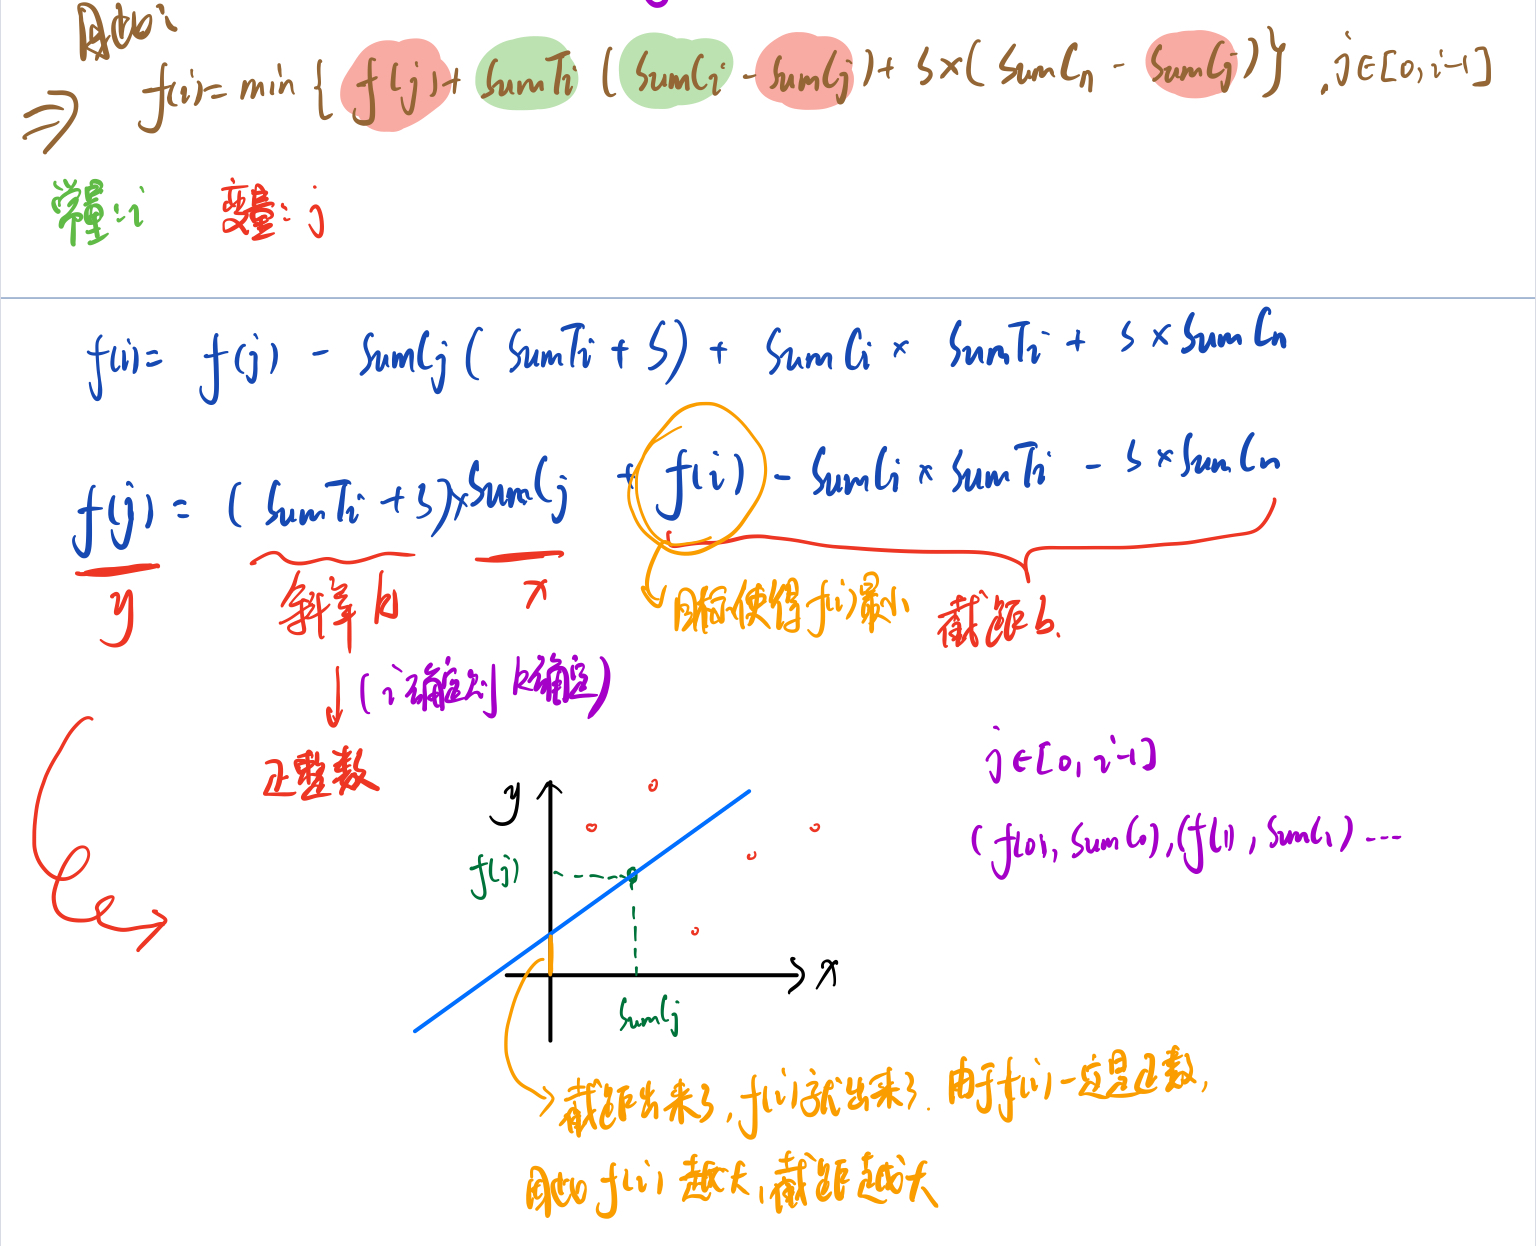 因此
⇒ f(i)= min { f(j)+ SumTi (SumCi - SumCj)+ S×(SumCn - SumCj)} , j∈[0,i-1]
常量:i 变量:j
f(i)= f(j) - SumCj ( SumTi + S) + SumCi × SumTi + S × SumCn
f(j) = (SumTi + S)×SumCj + f(i) - SumCi × SumTi - S ×SumCn
y 斜率 k x 目标使得f(i)最小 截距b.
(i确定则 k确定)
正整数
j∈[0, i-1]
(f(0), SumC0),(f(1), SumC1) ----
y
f(j)
x
SumCj
截距出来了,f(i)就出来了. 由于f(i)一定是正数,
因此 f(i) 越大,截距越大